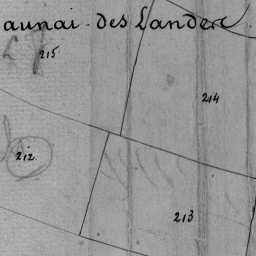 aunai des Landes
215
214
212
213